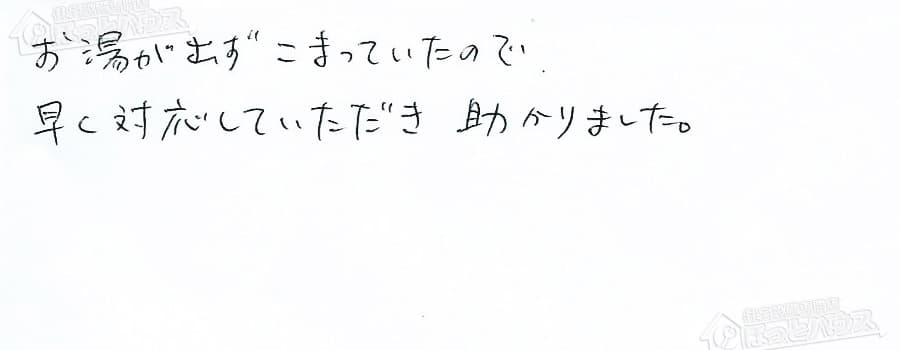 お湯が出ずこまっていたので、
早く対応していただき 助かりました。
ほっとハウス